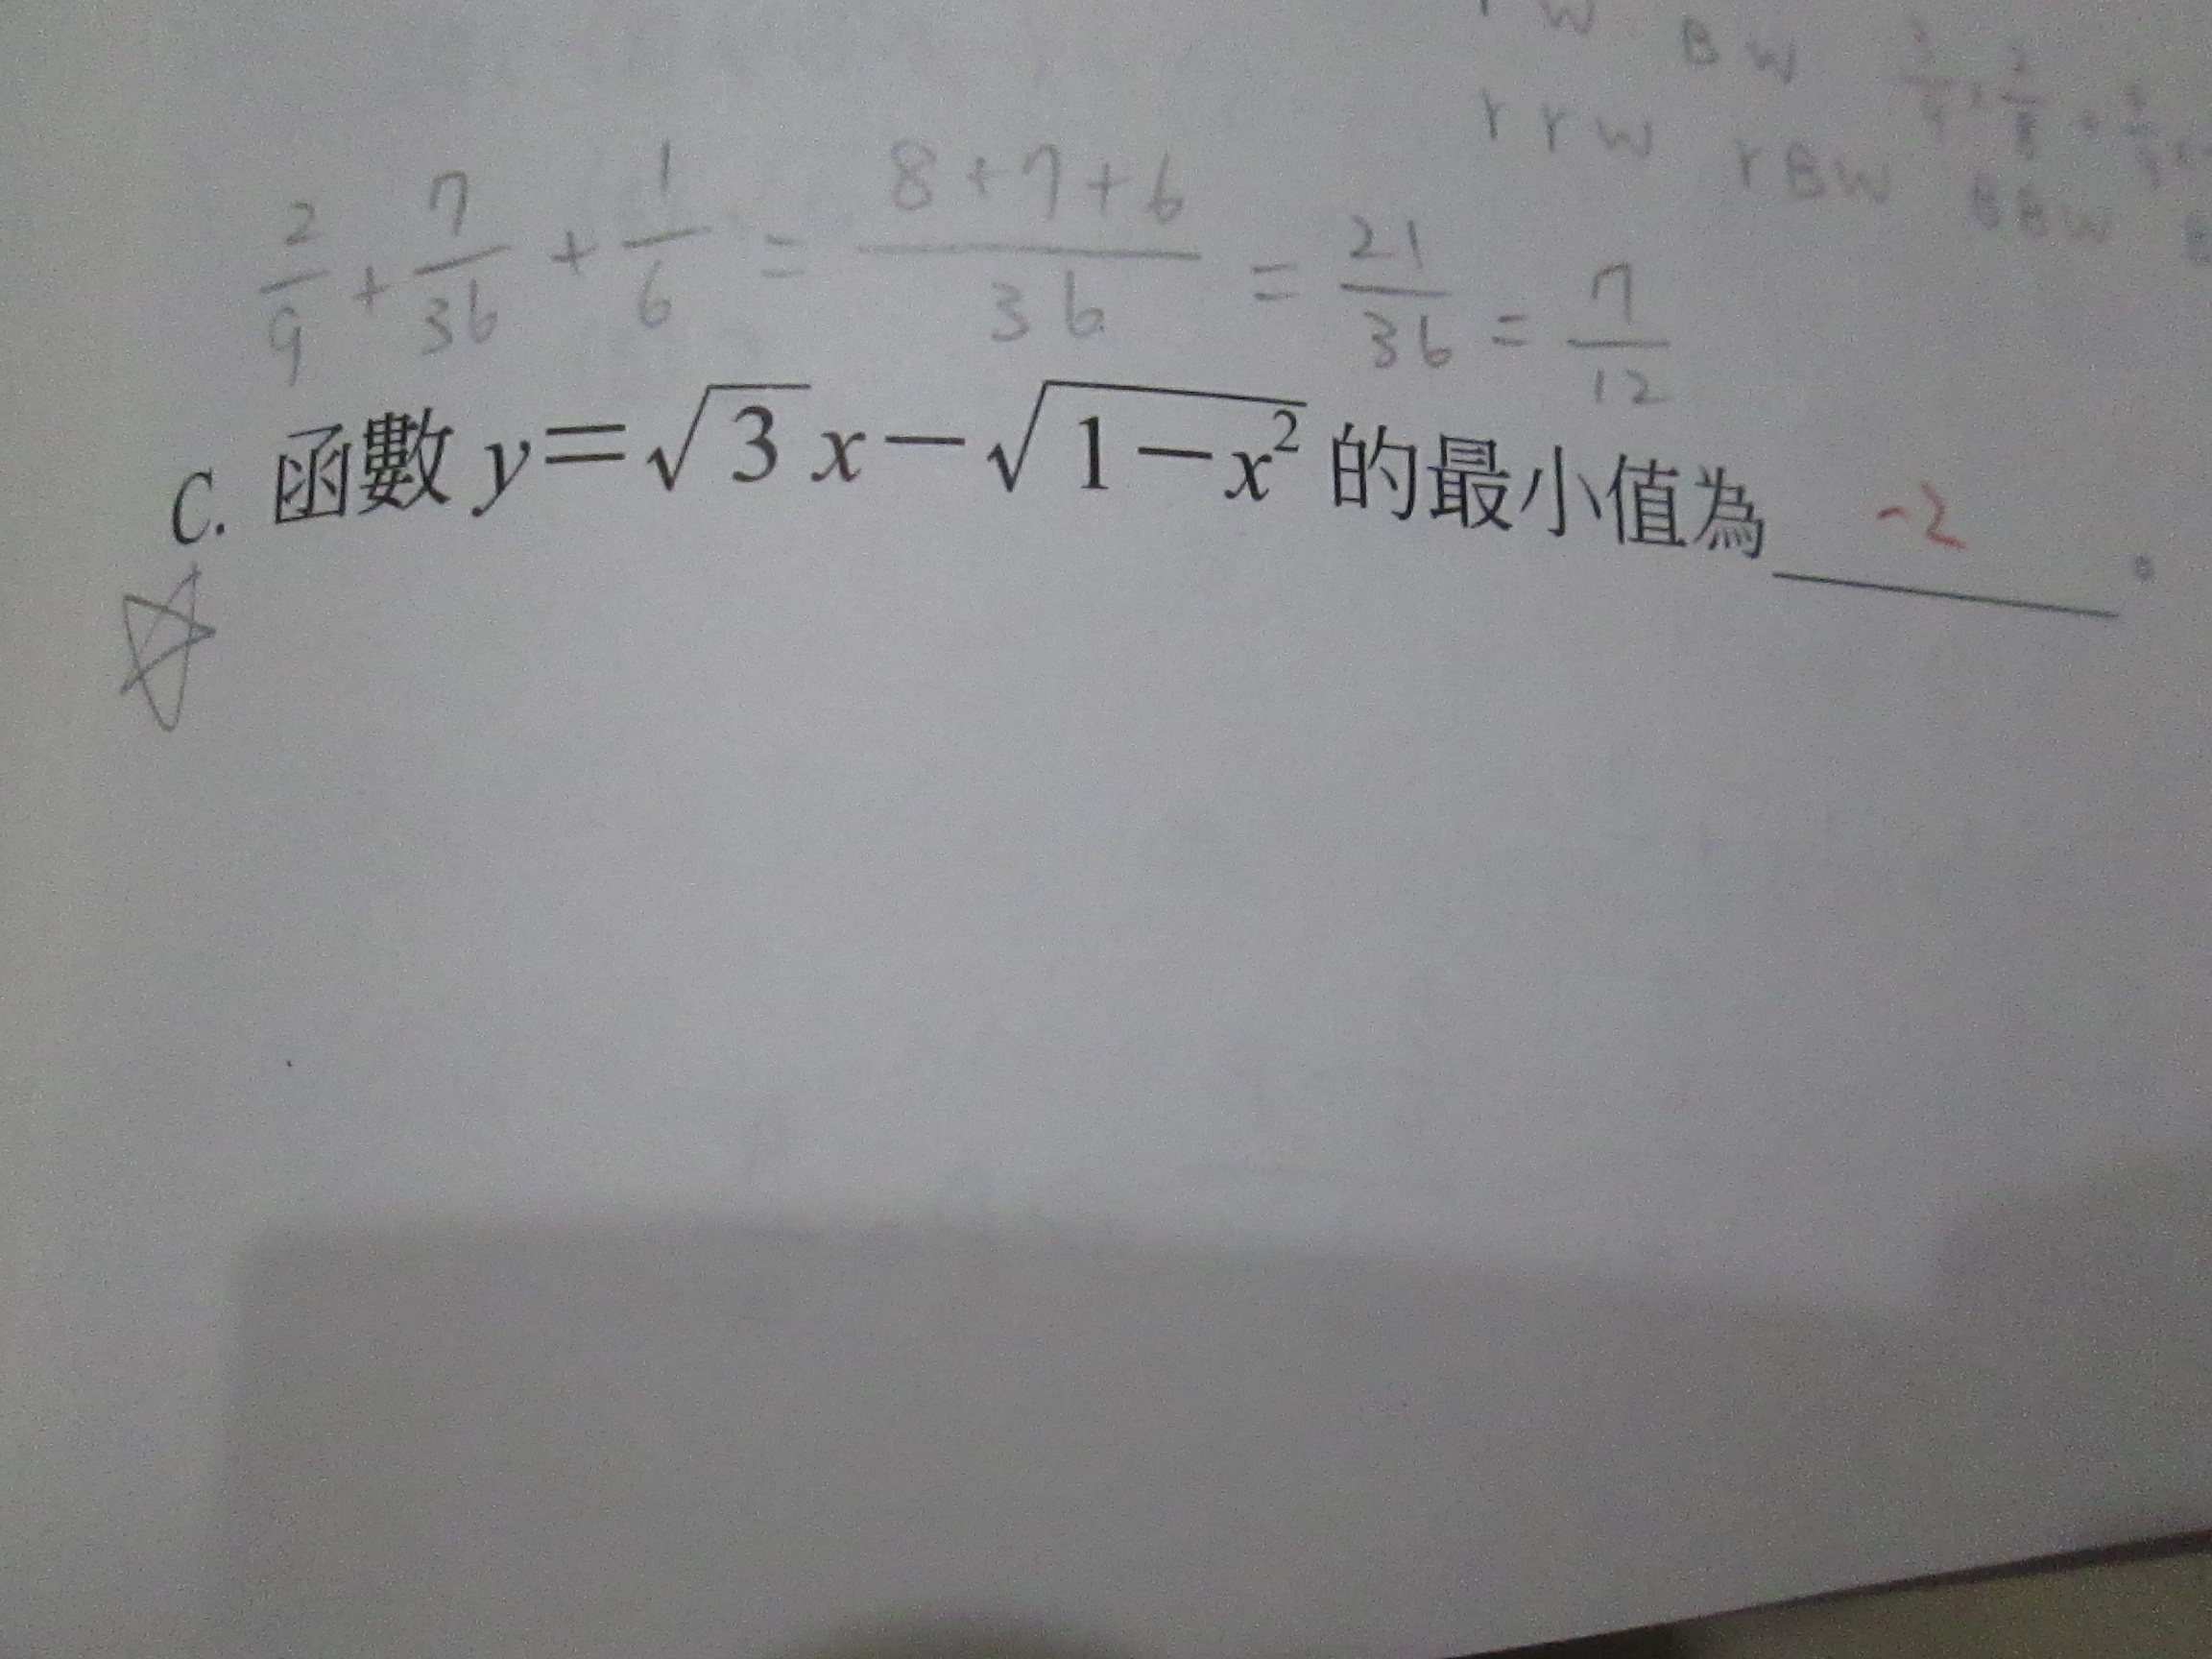 BW
rrw rBW BBW
2/9 + 7/36 + 1/6 = (8+7+6)/36 = 21/36 = 7/12
C. 函數 y=√3 x－√(1－x²) 的最小值為 -2 。